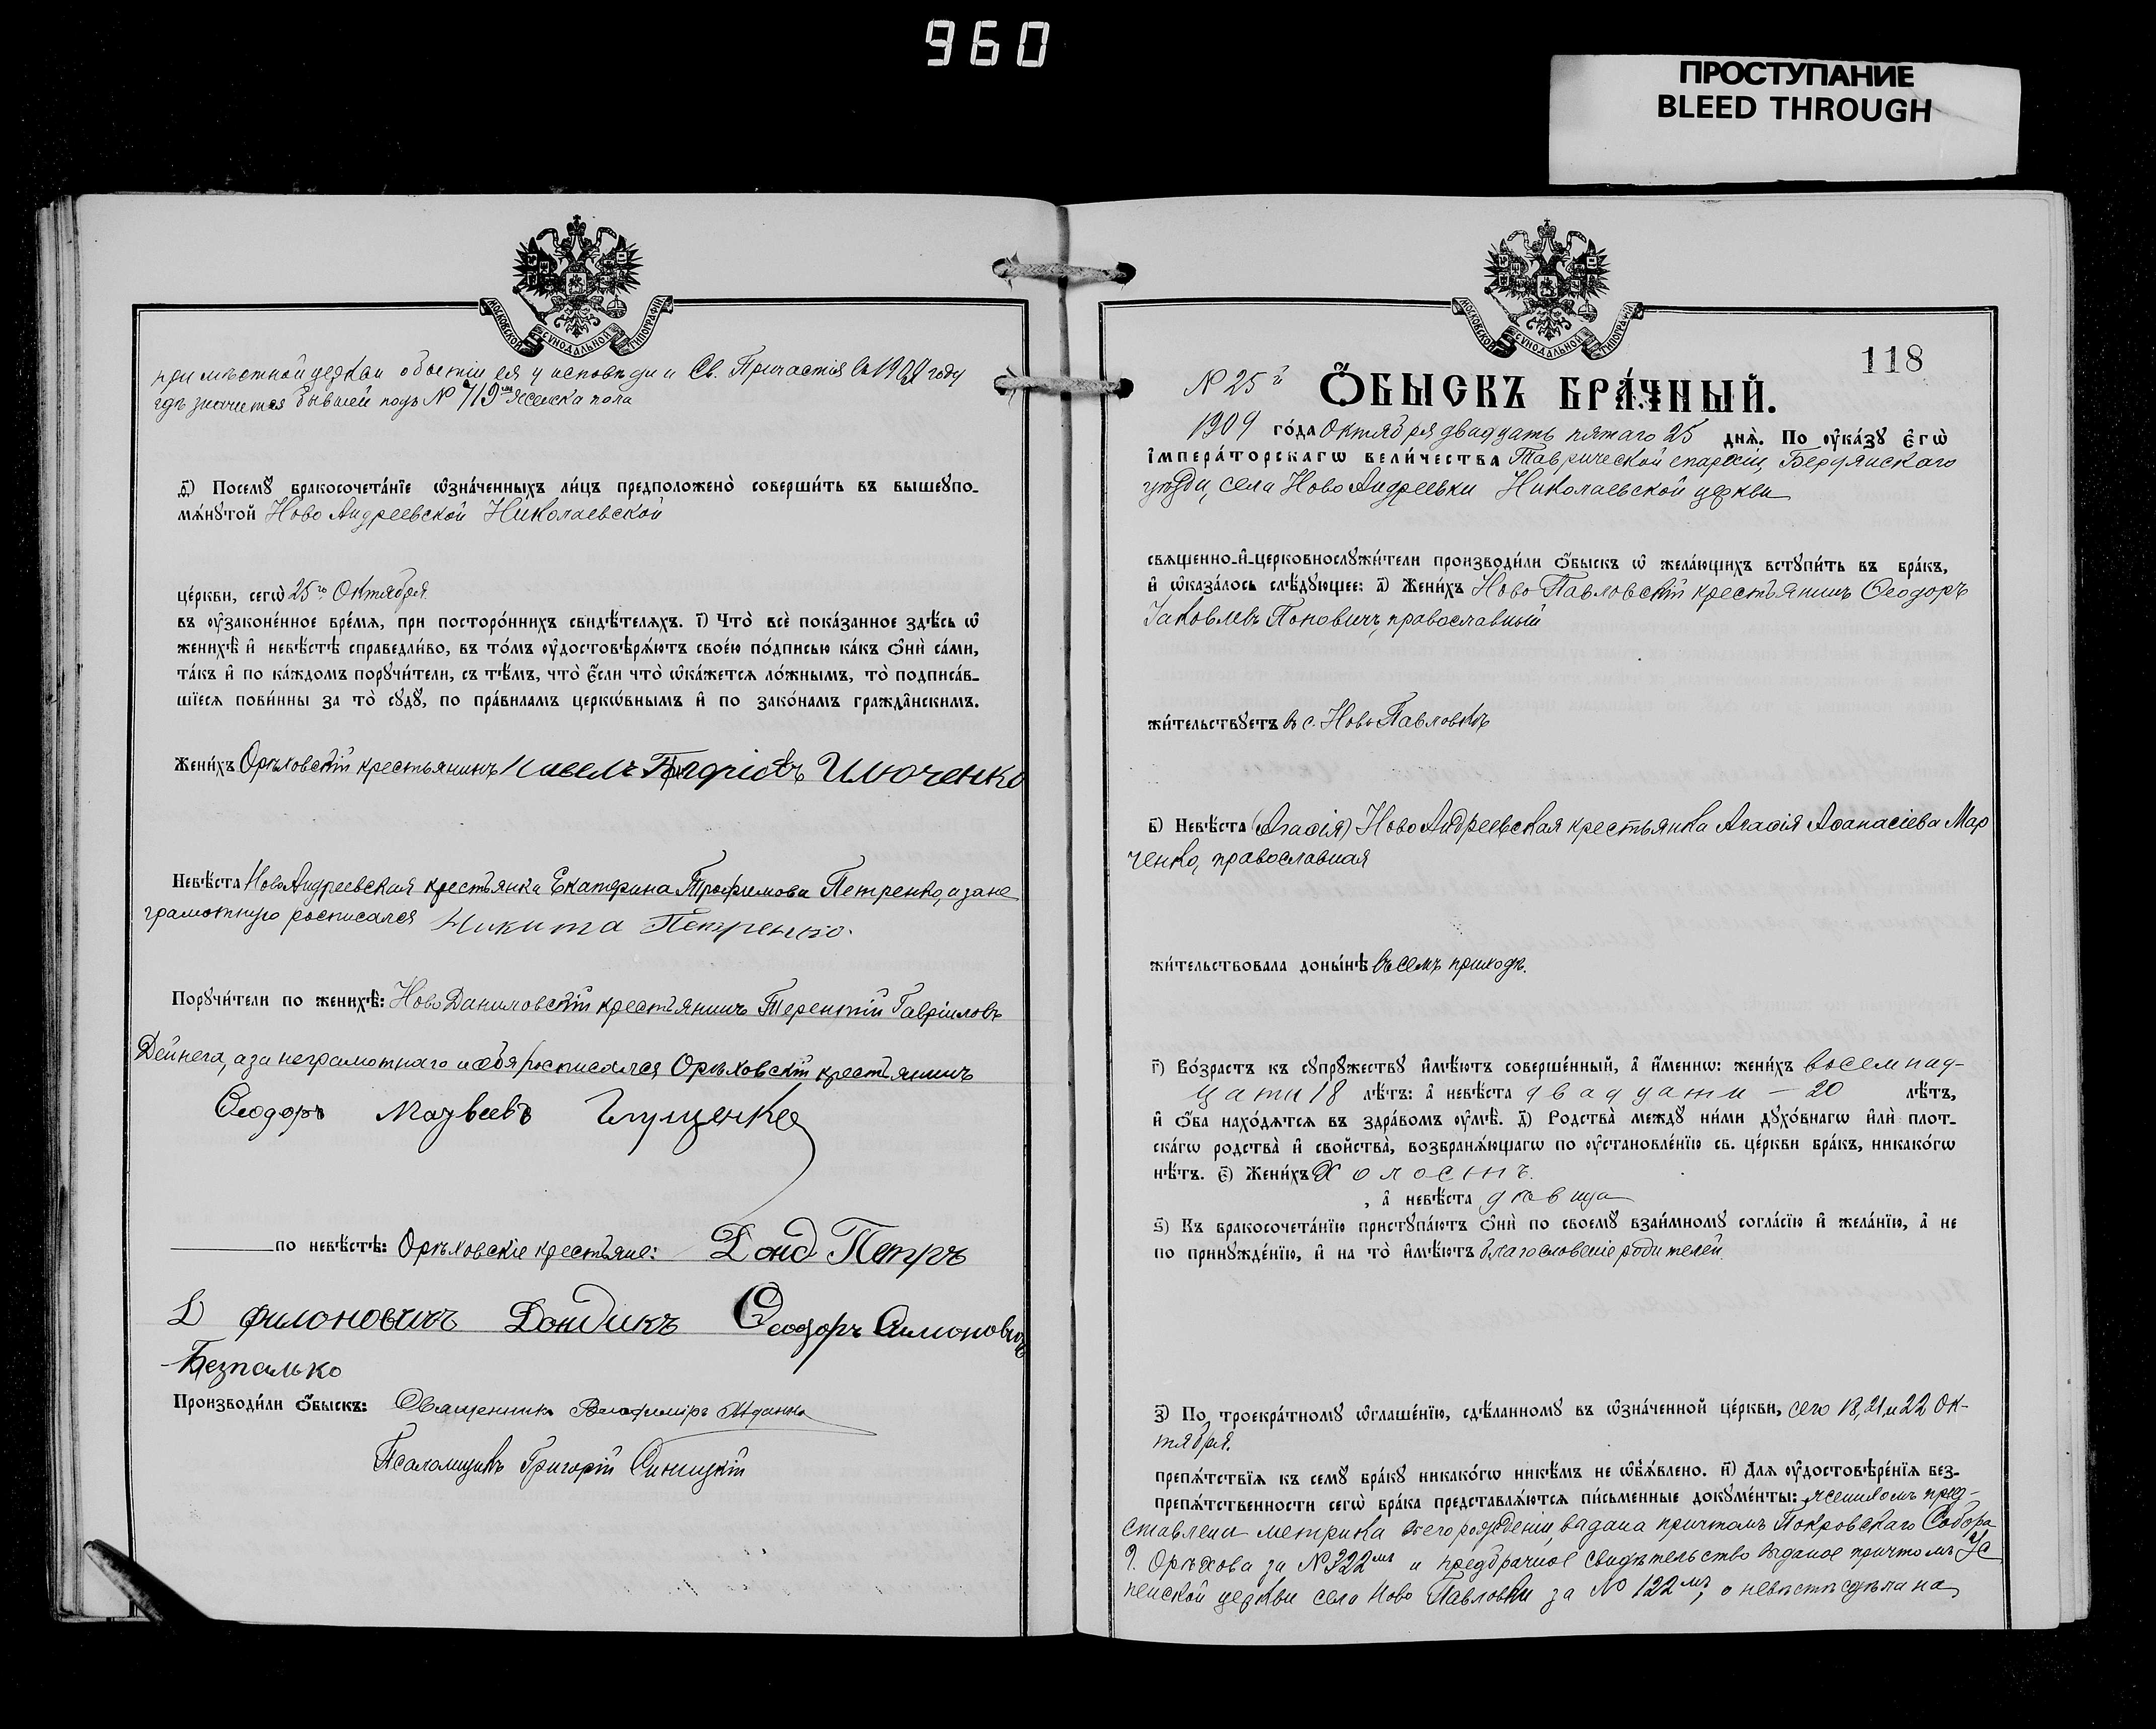 960
ПРОСТУПАНИЕ
BLEED THROUGH
МОСКОВСКОЙ СѴНОДАЛЬНОЙ ТИПОГРАФІИ
при мѣстной церкви о бытіи ея у исповѣди и Св. Причастія въ 1909 году
гдѣ значится бывшей подъ № 719мъ женска пола
д҃) Посемꙋ бракосочета́нїе ѡ҆зна́ченныхъ ли́цъ предположено̀ соверши́ть въ вышеꙋпо-
мѧ́нꙋтой Ново Андреевской Николаевской
це́ркви, сегѡ̀ 25го Октября
въ ᲂу҆законе́нное вре́мѧ, при посторо́ннихъ свидѣ́телѧхъ. і҃) Что̀ всѐ пока́занное здѣ́сь ѡ҆
женихѣ̀ и҆ невѣ́стѣ справедли́во, въ то́мъ ᲂу҆достовѣрѧ́ютъ свое́ю по́дписью ка́къ ѻ҆нѝ са́ми,
та́къ и҆ по ка́ждомъ порꙋчи́тели, съ тѣ́мъ, что̀ є҆́сли что̀ ѡ҆ка́жетсѧ ло́жнымъ, то̀ подписа́в-
шїесѧ пови́нны за то̀ сꙋдꙋ̀, по пра́виламъ церкѡ́внымъ и҆ по зако́намъ гражда̑нскимъ.
Жени́хъ Орѣховскій крестьянинъ Павелъ
Невѣ́ста Ново Андреевская крестьянка Екатерина Трофимова Петренко, а за не
грамотную росписался Никита Петренко.
Порꙋчи́тели по женихѣ̀: Ново Даниловскій крестьянинъ Терентій Гавріиловъ
Дейнега, а за неграмотнаго и себя росписался Орѣховскій крестьянинъ
Ѳеодоръ Матвеевъ Глущенко
по невѣ́стѣ: Орѣховскіе крестьяне: Донд Петръ
филоновичъ Дондикъ Ѳеодоръ Симоновичъ
Безпалько
Производи́ли ѻ҆́быскъ: Священникъ Владиміръ
Псаломщикъ Григорій Синицкій
МОСКОВСКОЙ СѴНОДАЛЬНОЙ ТИПОГРАФІИ
118
№ 25й Ѻ҆́БЫСКЪ БРА́ЧНЫЙ.
1909 го́да Октября двадцать пятаго 25 днѧ̀. По ᲂу҆ка́зꙋ є҆гѡ̀
і҆мпера́торскагѡ вели́чества Таврической епархіи, Бердянскаго
уѣзда, села Ново Андреевки Николаевской церкви
свѧщенно-и҆-церковнослꙋжи́тели производи́ли ѻ҆́быскъ ѡ҆ жела́ющихъ встꙋпи́ть въ бра́къ,
и҆ ѡ҆каза́лось слѣ́дꙋющее: а҃) Жени́хъ Ново Павловскій крестьянинъ Ѳеодоръ
Іаковлевъ Поповичъ, православный
жи́тельствꙋетъ въ с. Ново Павловкѣ
в҃) Невѣ́ста (Агаѳія) Ново Андреевская крестьянка Агаѳія Аѳанасіева Мар
ченко, православная
жи́тельствовала доны́нѣ въ семъ приходѣ.
г҃) Во́зрастъ къ сꙋпрꙋ́жествꙋ и҆мѣ́ютъ соверше́нный, а҆ и҆́менно: жени́хъ восемнад-
цати 18 лѣ́тъ: а҆ невѣ́ста двадцати - 20 лѣ́тъ,
и҆ ѻ҆́ба нахо́дѧтсѧ въ здра́вомъ ᲂу҆мѣ̀. д҃) Родства̀ междꙋ̀ ни́ми дꙋхо́внагѡ и҆лѝ плот-
ска́гѡ родства̀ и҆ свойства̀, возбранѧ́ющагѡ по ᲂу҆становле́нїю св. це́ркви бра́къ, никако́гѡ
нѣ́тъ. є҃) Жени́хъ Холостъ.
, а҆ невѣ́ста дѣвица
ѕ҃) Къ бракосочета́нїю пристꙋпа́ютъ ѻ҆нѝ по своемꙋ̀ взаи́мномꙋ согла́сїю и҆ жела́нїю, а҆ не
по принꙋжде́нїю, и҆ на то̀ и҆мѣ́ютъ благословеніе родителей
з҃) По троекра́тномꙋ ѡ҆глаше́нїю, сдѣ́ланномꙋ въ ѡ҆зна́ченной це́ркви, сего 18, 21 и 22 Ок-
тября.
препѧ́тствїѧ къ семꙋ̀ бра́кꙋ никако́гѡ никѣ́мъ не ѡ҆б̾ѧ́влено. и҃) Длѧ ᲂу҆достовѣре́нїѧ без-
препѧ́тственности сегѡ̀ бра́ка представлѧ́ютсѧ пи́сьменные докꙋме́нты: женихомъ пред-
ставлена метрика о его рожденіи, выдана причтомъ Покровскаго Собора
г. Орѣхова за № 322мъ и предбрачное свидѣтельство выданое причтомъ Ус
пенской церкви села Ново Павловки за № 122мъ, о невѣстѣ сдѣлана